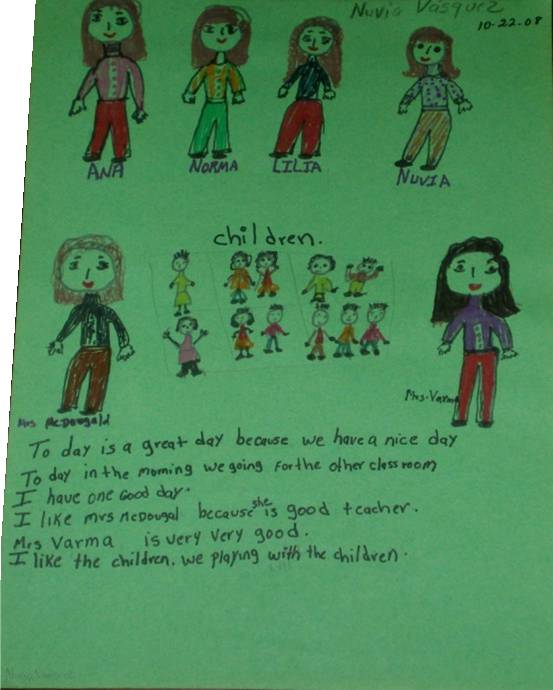 Nuvia Vasquez
10-22-08
ANA
NORMA
LILIA
NUVIA
children.
Mrs McDougald
Mrs. Varma
To day is a great day because we have a nice day
To day in the morning we going For the other class room
I have one Good day.
I like mrs McDougal because she is good teacher.
Mrs Varma is very very good.
I like the children. we playing with the children.